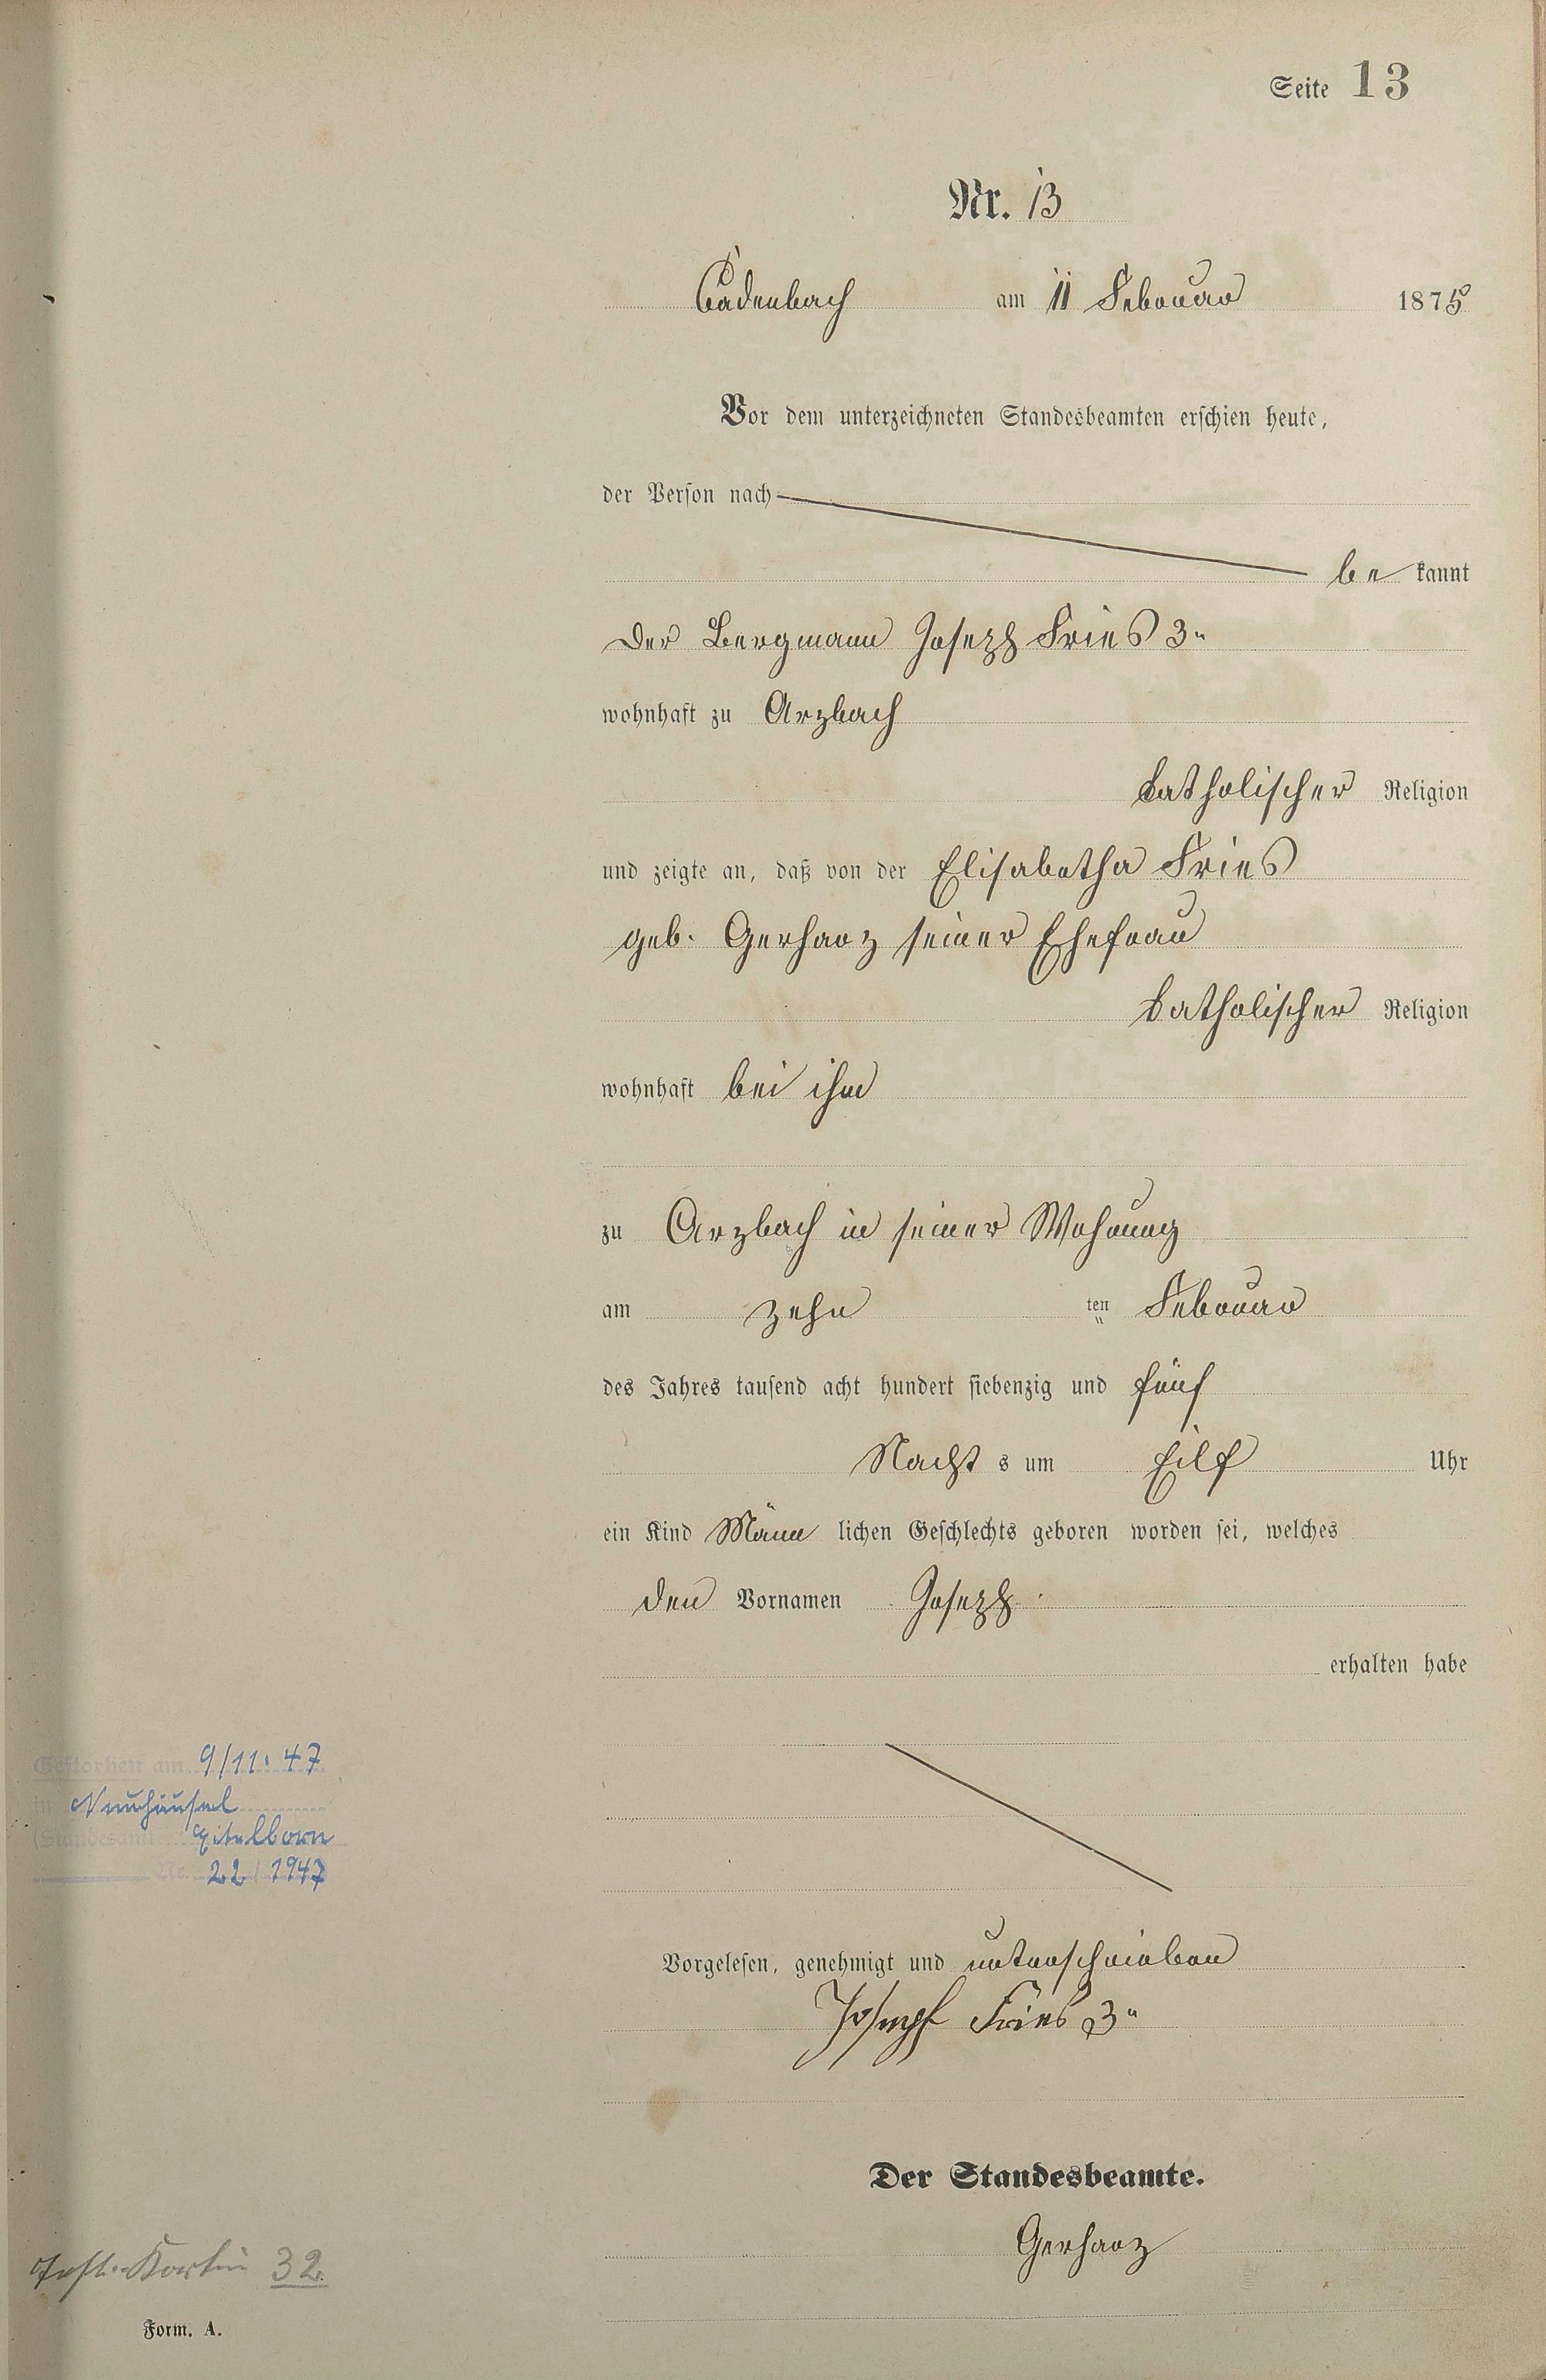 Seite 13
Nr. 13
Cadenbach am 11 Februar 1875
Vor dem unterzeichneten Standesbeamten erschien heute,
der Person nach
be kannt
der Bergmann Joseph Fries 3"
wohnhaft zu Arzbach
katholischer Religion
und zeigte an, daß von der Elisabetha Fries
geb. Gerharz seiner Ehefrau
katholischer Religion
wohnhaft bei ihm
zu Arzbach in seiner Wohnung
am zehn ten Februar
des Jahres tausend acht hundert siebenzig und fünf
Nacht s um Eilf Uhr
ein Kind Männ lichen Geschlechts geboren worden sei, welches
den Vornamen Joseph
erhalten habe
Gestorben am 9/11. 47
in Neuhäusel
(Standesamt Eitelborn
Nr. 22/1947
Vorgelesen, genehmigt und unterschrieben
Joseph Fries 3"
Der Standesbeamte.
Gerharz
32.
Form. A.